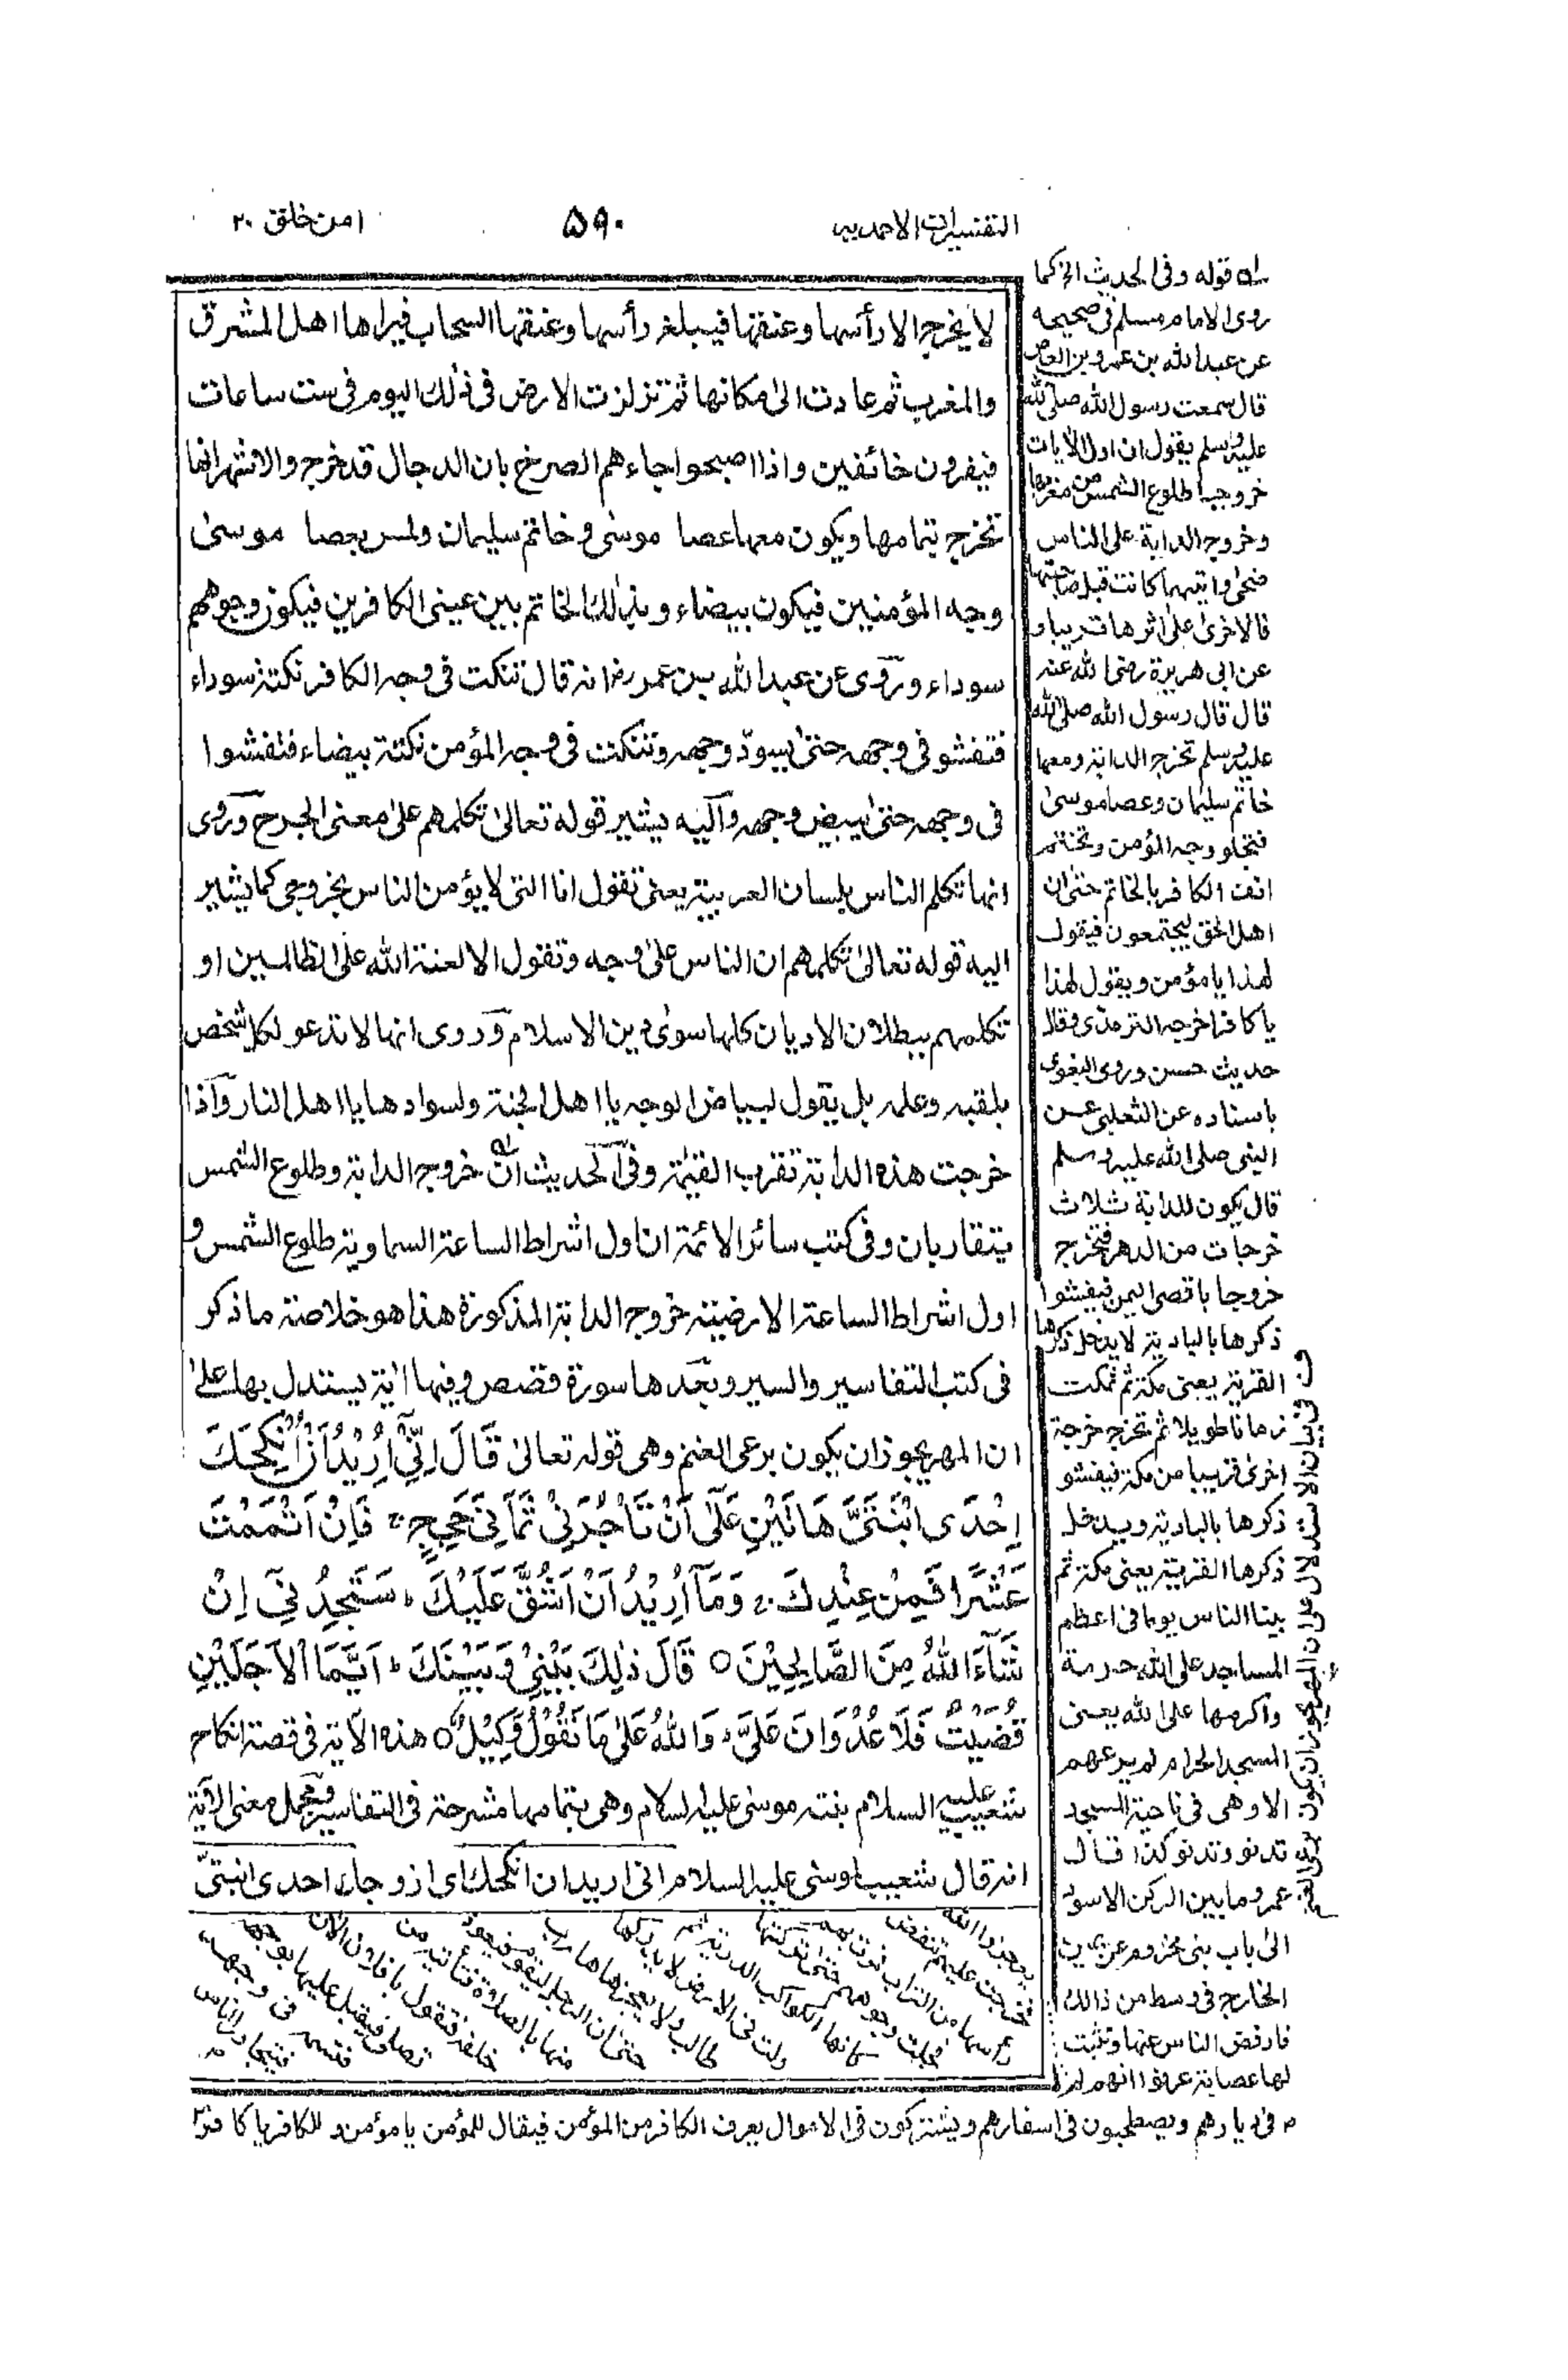 التفسيرات الاحمديه
۵۹۰
امن خلق ۲۰
لا يخرج الا رأسها وعنقها فيبلغ رأسها وعنقها السحاب فيراها اهل المشرق
والمغرب ثم عادت الى مكانها ثم تزلزت الارض فى ذلك اليوم فى ست ساعات
فيفرون خائفين واذا اصبحوا جاءهم الصرخ بان الدجال قد خرج والاشهر انها
تخرج بتمامها ويكون معها عصا موسىٰ وخاتم سليمان ولمس بعصا موسىٰ
وجه المؤمنين فيكون بيضاء وبذلك الخاتم بين عينى الكافرين فيكون وجوههم
سوداء وروى عن عبد الله بن عمر رض انه قال تنكت فى وجه الكافر نكتة سوداء
فتفشو فى وجهه حتىٰ يسودّ وجهه وتنكت فى وجه المؤمن نكتة بيضاء فتفشوا
فى وجهه حتىٰ يبيض وجهه وآليه يشير قوله تعالىٰ تكلمهم علىٰ معنى الجرح وروى
انها تكلم الناس بلسان العربية يعنى تقول انا التى لا يؤمن الناس بخروجى كما يشير
اليه قوله تعالىٰ تكلمهم ان الناس علىٰ وجه وتقول الا لعنة الله على الظالمين او
تكلمهم ببطلان الاديان كلها سوىٰ دين الاسلام وروى انها لا تدعو لكل شخص
بلقبه وعلمه بل يقول لبياض الوجه يا اهل الجنة ولسوادها يا اهل النار وآذا
خرجت هذه الدابة تقرب القيٰمة وفى الحديث ان خروج الدابة وطلوع الشمس
يتقاربان وفى كتب سائر الائمة ان اول اشراط الساعة السماوية طلوع الشمس و
اول اشراط الساعة الارضية خروج الدابة المذكورة هذا هو خلاصة ما ذكر
فى كتب التفاسير والسير وبعدها سورة قصص وفيها اٰية يستدل بها علىٰ
ان المهر يجوز ان يكون برعى الغنم وهى قوله تعالىٰ قَالَ اِنِّىْٓ اُرِيْدُ اَنْ اُنْكِحَكَ
اِحْدَى ابْنَتَىَّ هَاتَيْنِ عَلٰٓى اَنْ تَاْجُرَنِىْ ثَمَانِىَ حِجَجٍ ۚ فَاِنْ اَتْمَمْتَ
عَشْرًا فَمِنْ عِنْدِكَ ۚ وَمَآ اُرِيْدُ اَنْ اَشُقَّ عَلَيْكَ ؕ سَتَجِدُنِىْٓ اِنْ
شَآءَ اللّٰهُ مِنَ الصَّالِحِيْنَ ○ قَالَ ذٰلِكَ بَيْنِىْ وَبَيْنَكَ ؕ اَيَّمَا الْاَجَلَيْنِ
قَضَيْتُ فَلَا عُدْوَانَ عَلَىَّ ؕ وَاللّٰهُ عَلٰى مَا نَقُوْلُ وَكِيْلٌ ○ هذه الآية فى قصة انكاح
شعيب عليه السلام بنته موسىٰ عليه السلام وهى بتمامها مشرحة فى التفاسير ومجمل معنى الآية
انه قال شعيب لموسى عليه السلام انى اريد ان انكحك اى ازوجك احدى ابنتىّ
له قوله وفى الحديث الخ كما
روى الامام مسلم فى صحيحه
عن عبد الله بن عمرو بن العاص
قال سمعت رسول الله صلى الله
عليه وسلم يقول ان اول الآيات
خروجا طلوع الشمس من مغربها
وخروج الدابة على الناس
ضحىٰ وايتهما كانت قبل صاحبتها
فالاخرىٰ علىٰ اثرها قريبا و
عن ابى هريرة رضى الله عنه
قال قال رسول الله صلى الله
عليه وسلم تخرج الدابة ومعها
خاتم سليمان وعصا موسىٰ
فتجلو وجه المؤمن وتختم
انف الكافر بالخاتم حتىٰ ان
اهل الحق ليجتمعون فيقول
لهذا يا مؤمن ويقول لهذا
يا كافر اخرجه الترمذى وقال
حديث حسن وروى البغوى
باسناده عن الثعلبى عن
النبى صلى الله عليه وسلم
قال يكون للدابة ثلاث
خرجات من الدهر فتخرج
خروجا باقصى اليمن فيفشوا
ذكرها بالبادية لا يدخل ذكرها
القرية يعنى مكة ثم تمكث
زمانا طويلا ثم تخرج خرجة
اخرىٰ قريبا من مكة فيفشو
ذكرها بالبادية ويدخل
ذكرها القرية يعنى مكة ثم
بينا الناس يوما فى اعظم
المساجد على الله حرمة
واكرمها على الله يعنى
المسجد الحرام لم يرعهم
الا وهى فى ناحية المسجد
تدنو وتدنو كذا قال
عمرو ما بين الركن الاسود
الىٰ باب بنى مخزوم عن يمين
الخارج فى وسط من ذالك
فارفض الناس عنها وتثبت
لها عصابة عرفوا انهم لن
يعجزوا الله
فخرجت عليهم تنفض
رأسها من التراب
كانها الكواكب الدرية ثم
ولت فى الارض لا يدركها
طالب ولا يعجزها هارب
حتىٰ ان الرجل ليقوم فيعوذ
منها بالصلاة فتأتيه من
خلفه فتقول يا فلان الآن
تصلى فيقبل عليها بوجهه
فتسمه فى وجهه
فيتجاور الناس
م فى ديارهم ويصطحبون فى اسفارهم ويشتركون فى الاموال يعرف الكافر من المؤمن فيقال للمؤمن يا مؤمن و للكافر يا كافر
ف فى بيان الاستدلال على ان المهر يجوز ان يكون برعى الغنم